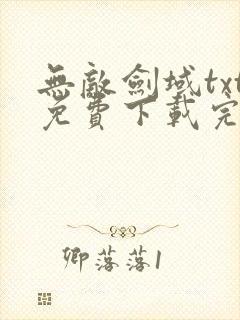 無敵劍域txt
免費下載完
卿落落1